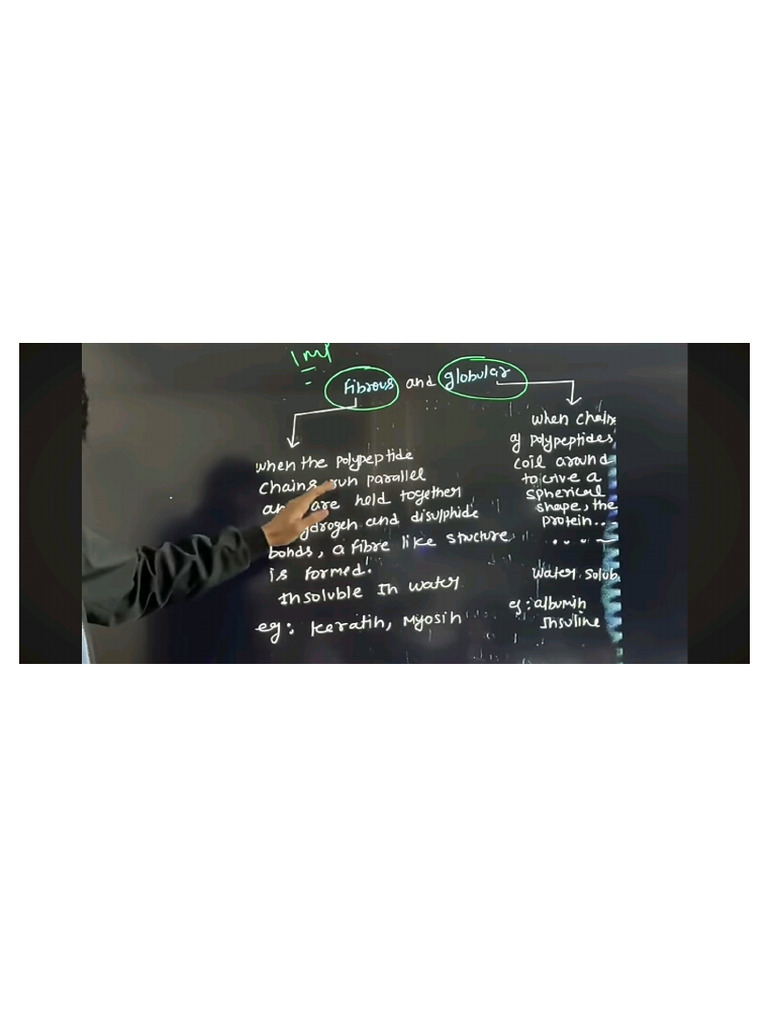 Imp
Fibrous and globular
when the polypeptide
chains run parallel
are held together
hydrogen and disulphide
bonds, a fibre like structure
is formed.
Insoluble In water
eg: keratin, Myosin
when chains
of polypeptides
coil around
to give a
spherical
shape, the
protein..
....
water solub
eg: albumin
Insuline